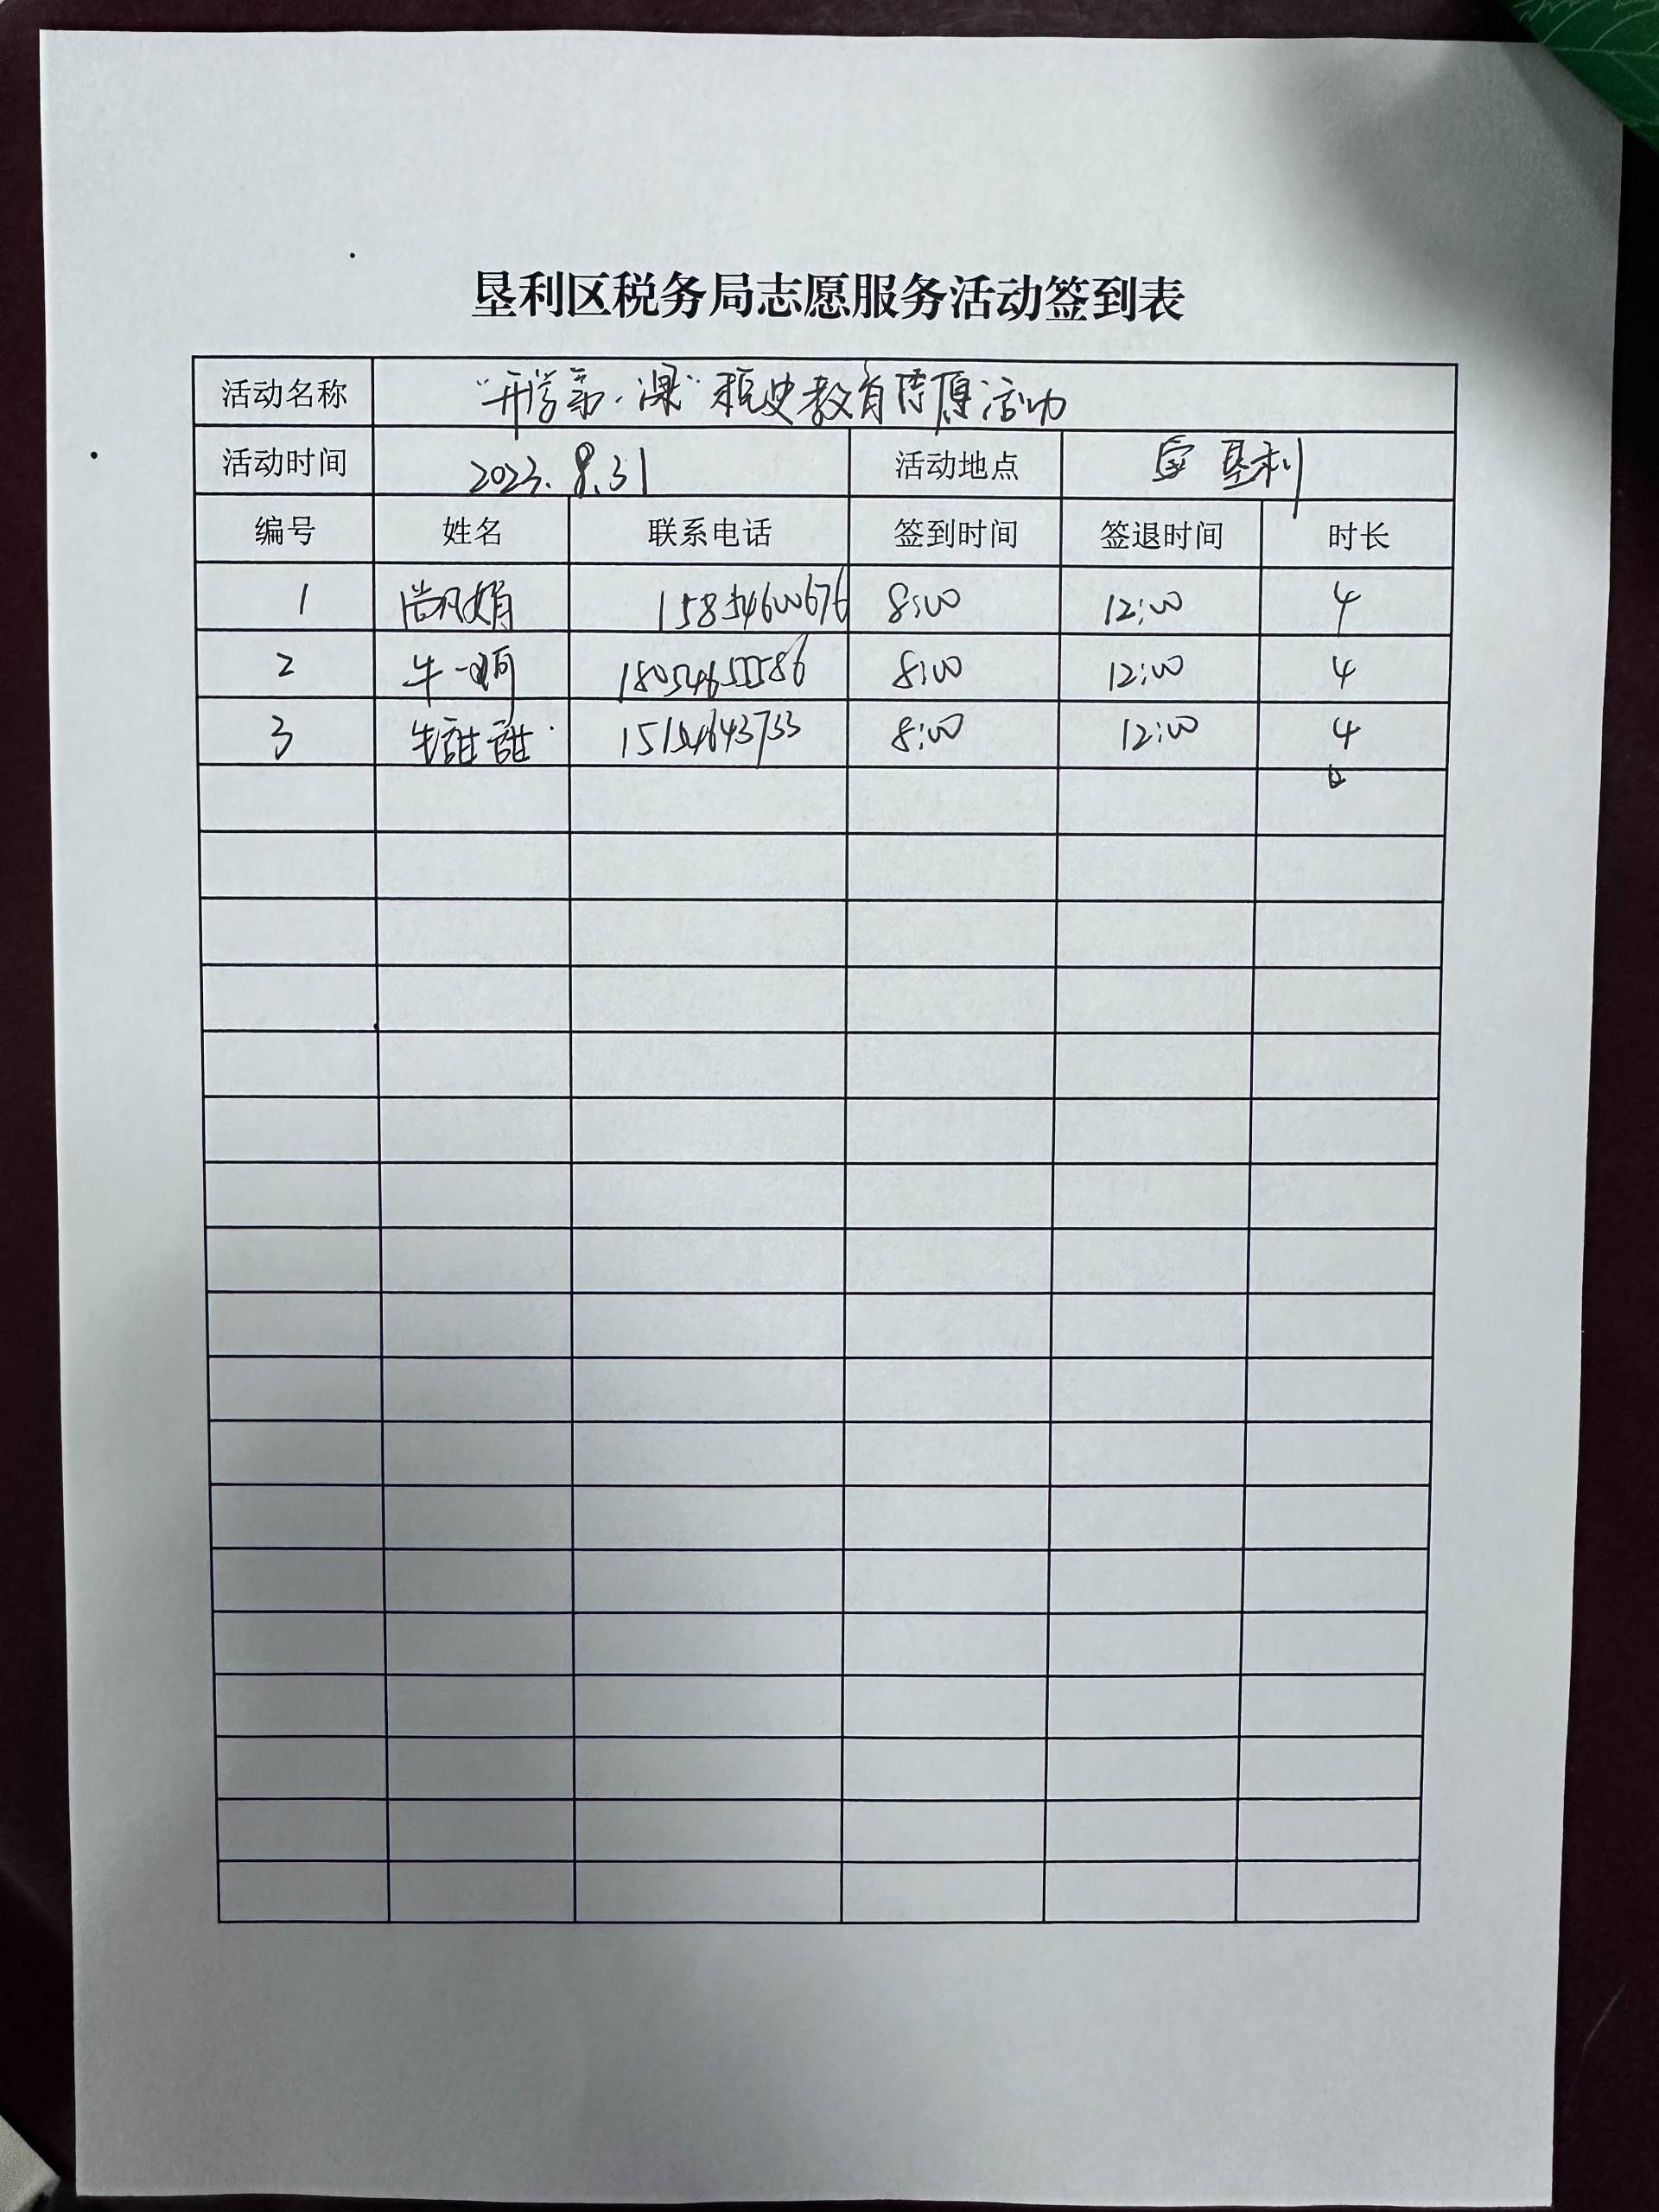 垦利区税务局志愿服务活动签到表
活动名称 "开学第一课"税史教育志愿活动
活动时间 2023.8.31 活动地点 垦利
编号 姓名 联系电话 签到时间 签退时间 时长
1 尚凤娟 15854600676 8:00 12:00 4
2 牛一 8:00 12:00 4
3 甜甜 8:00 12:00 4